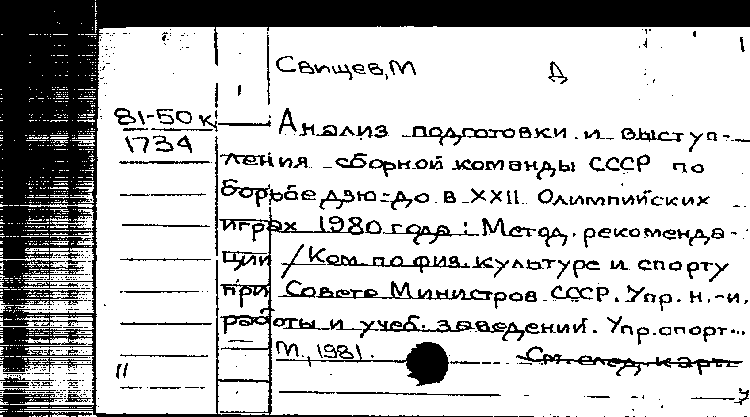 Свищев, М
Д
81-50 к
1734
Анализ подготовки и выступ-
ления сборной команды СССР по
борьбе дзю-до в XXII Олимпийских
играх 1980 года : Метод. рекоменда-
ции / Ком. по физ. культуре и спорту
при Совете Министров СССР. Упр. н.-и.
работы и учеб. заведений. Упр. спорт...
М., 1981.
См. след. карт.
11